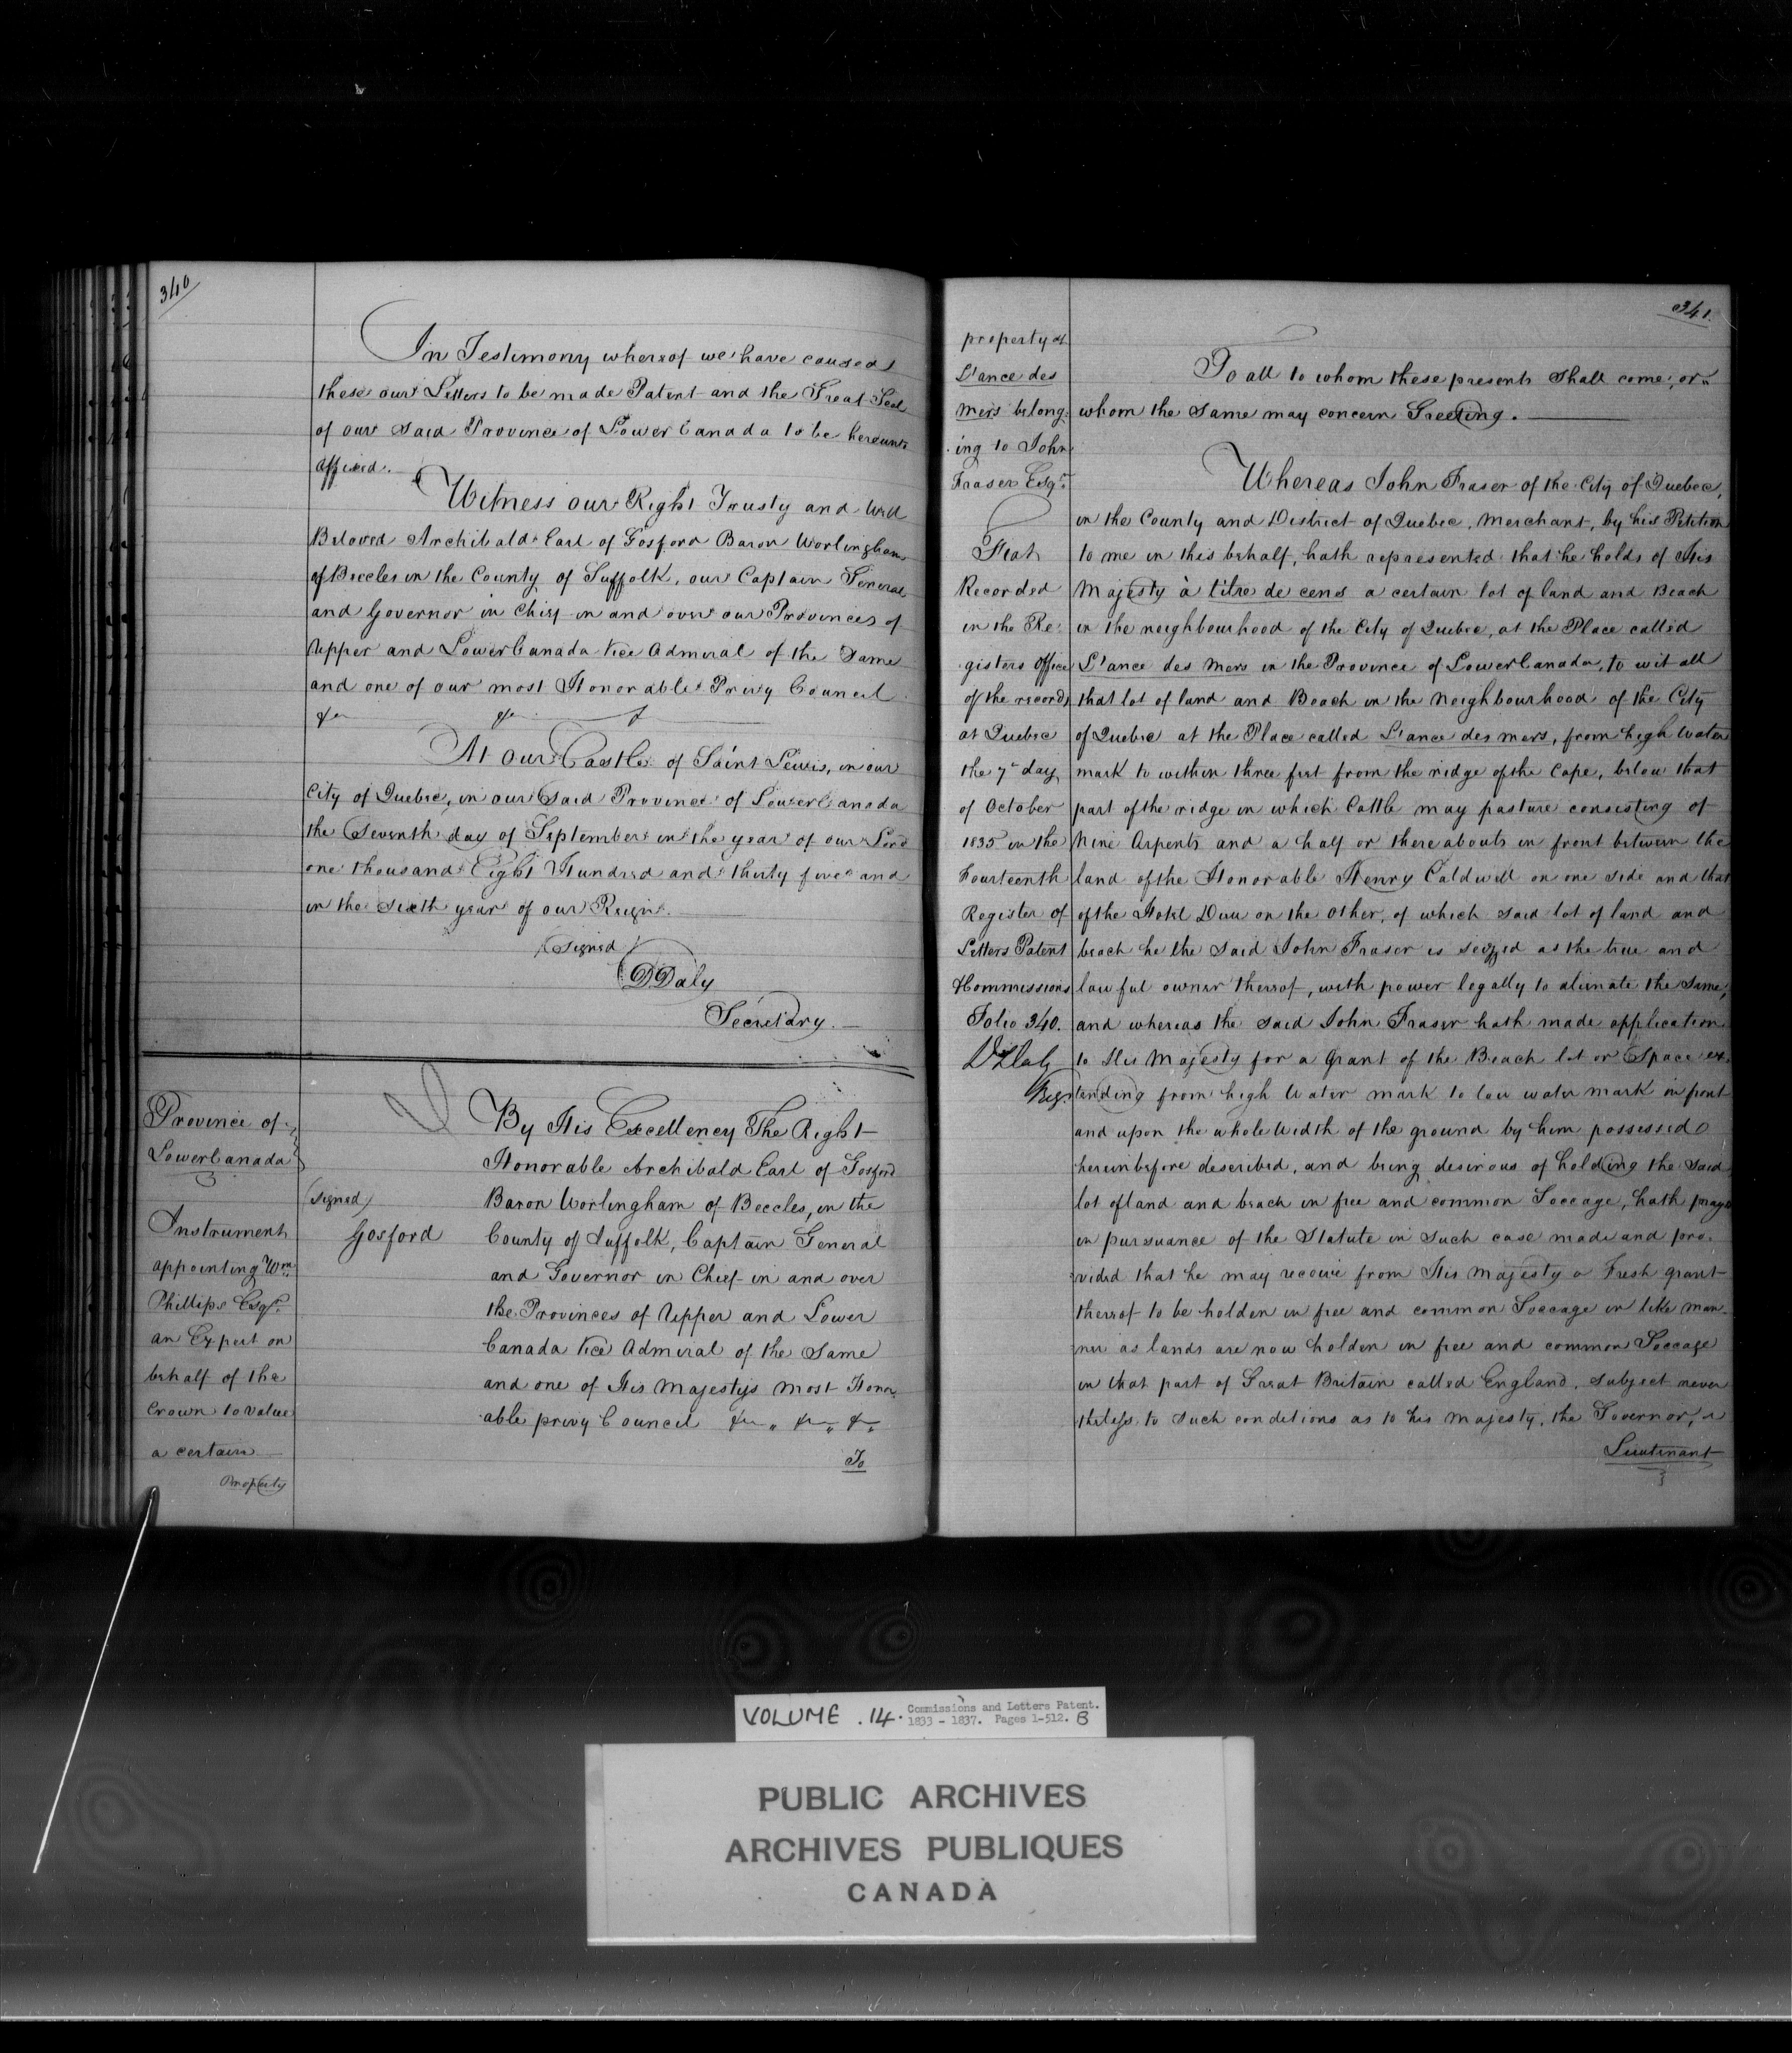 340
In Testimony whereof we have caused
these our Letters to be made Patent and the Great Seal
of our said Province of Lower Canada to be hereunto
affixed.
Witness our Right Trusty and Well
Beloved Archibald Earl of Gosford Baron Worlingham
of Beccles in the County of Suffolk, our Captain General
and Governor in Chief in and over our Provinces of
Upper and Lower Canada Vice Admiral of the Same
and one of our most Honorable Privy Council
&c &c
At our Castle of Saint Lewis, in our
City of Quebec, in our Said Province of Lower Canada
the Seventh day of September in the year of our Lord
one thousand Eight Hundred and thirty five and
in the sixth year of our Reign.
(Signed)
D Daly
Secretary.
Province of
Lower Canada
Instrument
appointing Wm
Phillips Esqr.
an Expert on
behalf of the
Crown to value
a certain
Property
(signed)
Gosford
By His Excellency The Right
Honorable Archibald Earl of Gosford
Baron Worlingham of Beccles, in the
County of Suffolk, Captain General
and Governor in Chief in and over
the Provinces of Upper and Lower
Canada Vice Admiral of the Same
and one of His Majestys most Honor
able privy Council &c " &c " &c "
To
341.
property at
L'ance des
Mers belong-
ing to John
Fraser Esqr.
Fiat
Recorded
in the Re-
gisters office
of the records
at Quebec
the 7th day
of October
1835 in the
Fourteenth
Register of
Letters Patent
&Commissions
Folio 340.
D Daly
Regr
To all to whom these presents shall come, or
whom the same may concern Greeting.
Whereas John Fraser of the City of Quebec,
in the County and District of Quebec, Merchant, by his Petition
to me in this behalf, hath represented that he holds of His
Majesty à titre de cens a certain lot of land and Beach
in the neighbourhood of the City of Quebec, at the Place called
L'ance des Mers in the Province of Lower Canada, to wit all
that lot of land and Beach in the Neighbourhood of the City
of Quebec at the Place called L'ance des mers, from high Water
mark to within three feet from the ridge of the Cape, below that
part of the ridge in which Cattle may pasture consisting of
Nine Arpents and a half or thereabouts in front between the
land of the Honorable Henry Caldwell on one side and that
of the Hotel Dieu on the other, of which said lot of land and
beach he the said John Fraser is seized as the true and
lawful owner thereof, with power legally to alienate the Same,
and whereas the said John Fraser hath made application
to His Majesty for a grant of the Beach lot or Space ex-
tending from high Water mark to low water mark in front
and upon the whole Width of the ground by him possessed
hereinbefore described, and being desirous of holding the said
lot of land and beach in free and common Soccage, hath prayed
in pursuance of the Statute in such case made and pro-
vided that he may receive from His Majesty a Fresh grant
thereof to be holden in free and common Soccage in like man-
ner as lands are now holden in free and common Soccage
in that part of Great Britain called England, subject never
theless to such conditions as to his Majesty, the Governor,
Lieutenant
VOLUME .14. Commissions and Letters Patent.
1833 - 1837. Pages 1-512. B
PUBLIC ARCHIVES
ARCHIVES PUBLIQUES
CANADA